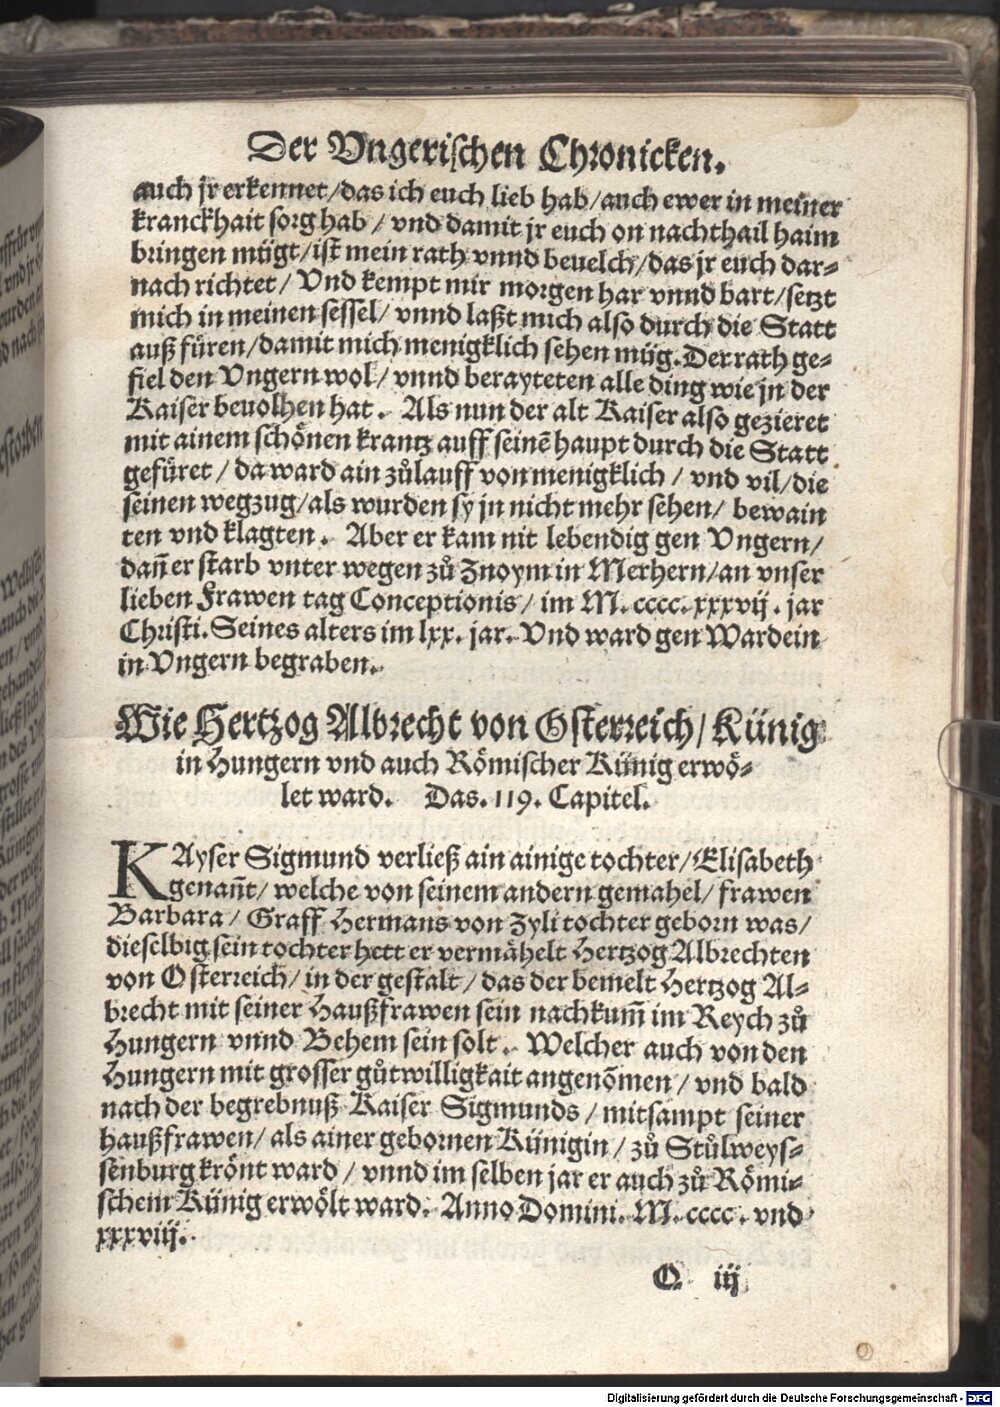 Der Vngerischen Chronicken.
auch jr erkennet/das ich euch lieb hab/auch ewer in meiner
kranckhait sorg hab / vnd damit jr euch on nachthail haim
bringen mügt/ist mein rath vnnd beuelch/das jr euch dar=
nach richtet/ Vnd kempt mir morgen har vnnd bart/setzt
mich in meinen sessel/ vnnd laßt mich also durch die Statt
auß füren/damit mich menigklich sehen müg. Der rath ge=
fiel den Vngern wol/ vnnd berayteten alle ding wie jn der
Kaiser beuolhen hat. Als nun der alt Kaiser also gezieret
mit ainem schönen krantz auff seinē haupt durch die Statt
gefüret / da ward ain zůlauff von menigklich / vnd vil/die
seinen wegzug/als wurden sy jn nicht mehr sehen/ bewain
ten vnd klagten. Aber er kam nit lebendig gen Vngern/
dañ er starb vnter wegen zů Znoym in Merhern/an vnser
lieben Frawen tag Conceptionis/ im M. cccc. xxxvij. jar
Christi. Seines alters im lxx. jar. Vnd ward gen Wardein
in Vngern begraben.
Wie Hertzog Albrecht von Osterreich/ Künig
in Hungern vnd auch Römischer Künig erwö=
let ward. Das. 119. Capitel.
KAyser Sigmund verließ ain ainige tochter/Elisabeth
genañt/ welche von seinem andern gemahel/ frawen
Barbara/ Graff Hermans von Zyli tochter geborn was/
dieselbig sein tochter hett er vermähelt Hertzog Albrechten
von Osterreich/ in der gestalt/ das der bemelt Hertzog Al=
brecht mit seiner Haußfrawen sein nachkum̃ im Reych zů
Hungern vnnd Behem sein solt. Welcher auch von den
Hungern mit grosser gůtwilligkait angenõmen/ vnd bald
nach der begrebnuß Kaiser Sigmunds / mitsampt seiner
haußfrawen/ als ainer gebornen Künigin/ zů Stůlweys=
senburg krönt ward/ vnnd im selben jar er auch zů Römi=
schem Künig erwölt ward. Anno Domini. M. cccc. vnd
xxxviij.
Q iij
Digitalisierung gefördert durch die Deutsche Forschungsgemeinschaft - DFG